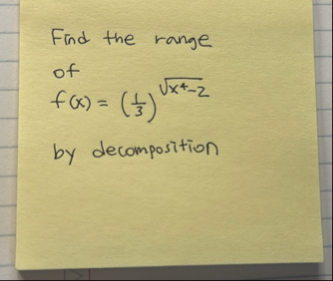 Find the range
of
f(x) = (1/3)^√(x⁴-2)
by decomposition